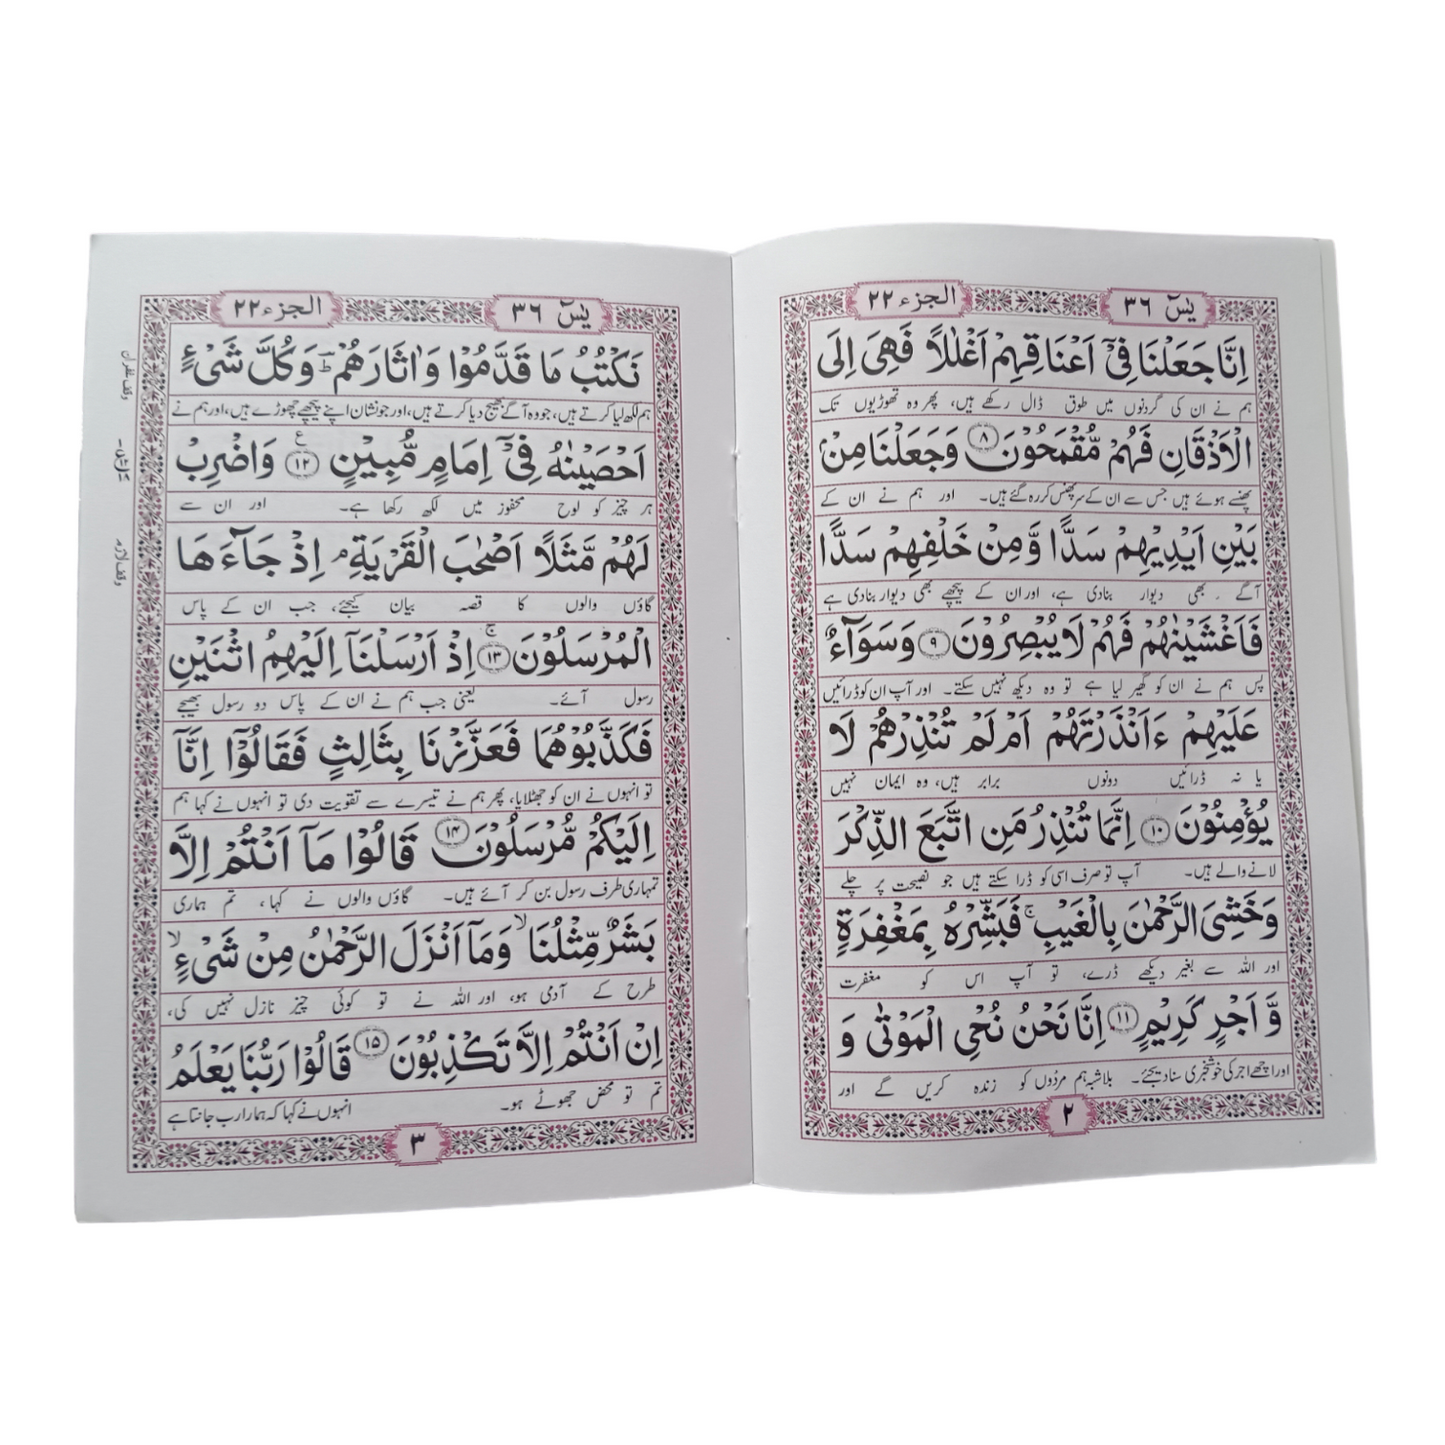 یٰسٓ ٣٦
الجزء ٢٢
اِنَّا جَعَلْنَا فِیْۤ اَعْنَاقِهِمْ اَغْلٰلًا فَهِیَ اِلَی
ہم نے ان کی گردنوں میں طوق ڈال رکھے ہیں، پھر وہ تھوڑیوں تک
الْاَذْقَانِ فَهُمْ مُّقْمَحُوْنَ ﴿٨﴾ وَجَعَلْنَا مِنْۢ
پھنسے ہوئے ہیں جس سے ان کے سر پھنس کر رہ گئے ہیں۔ اور ہم نے ان کے
بَیْنِ اَیْدِیْهِمْ سَدًّا وَّمِنْ خَلْفِهِمْ سَدًّا
آگے بھی دیوار بنا دی ہے، اور ان کے پیچھے بھی دیوار بنا دی ہے
فَاَغْشَیْنٰهُمْ فَهُمْ لَا یُبْصِرُوْنَ ﴿٩﴾ وَسَوَآءٌ
پس ہم نے ان کو گھیر لیا ہے تو وہ دیکھ نہیں سکتے۔ اور آپ ان کو ڈرائیں
عَلَیْهِمْ ءَاَنْذَرْتَهُمْ اَمْ لَمْ تُنْذِرْهُمْ لَا
یا نہ ڈرائیں دونوں برابر ہیں، وہ ایمان نہیں
یُؤْمِنُوْنَ ﴿١٠﴾ اِنَّمَا تُنْذِرُ مَنِ اتَّبَعَ الذِّكْرَ
لانے والے ہیں۔ آپ تو صرف اسی کو ڈرا سکتے ہیں جو نصیحت پر چلے
وَخَشِیَ الرَّحْمٰنَ بِالْغَیْبِ ۚ فَبَشِّرْهُ بِمَغْفِرَةٍ
اور اللہ سے بغیر دیکھے ڈرے، تو آپ اس کو مغفرت
وَّ اَجْرٍ كَرِیْمٍ ﴿١١﴾ اِنَّا نَحْنُ نُحْیِ الْمَوْتٰی وَ
اور اچھے اجر کی خوشخبری سنا دیجئے۔ بلاشبہ ہم مردوں کو زندہ کریں گے اور
٢
یٰسٓ ٣٦
الجزء ٢٢
نَكْتُبُ مَا قَدَّمُوْا وَاٰثَارَهُمْ ؕ وَكُلَّ شَیْءٍ
ہم لکھ لیا کرتے ہیں، جو وہ آگے بھیج دیا کرتے ہیں، اور جو نشان اپنے پیچھے چھوڑے ہیں، اور ہم نے
اَحْصَیْنٰهُ فِیْۤ اِمَامٍ مُّبِیْنٍ ﴿١٢﴾ ع وَاضْرِبْ
ہر چیز کو لوح محفوز میں لکھ رکھا ہے۔ اور ان سے
لَهُمْ مَّثَلًا اَصْحٰبَ الْقَرْیَةِ ۘ اِذْ جَآءَهَا
گاؤں والوں کا قصہ بیان کیجئے، جب ان کے پاس
الْمُرْسَلُوْنَ ﴿١٣﴾ ۚ اِذْ اَرْسَلْنَاۤ اِلَیْهِمُ اثْنَیْنِ
رسول آئے۔ یعنی جب ہم نے ان کے پاس دو رسول بھیجے
فَكَذَّبُوْهُمَا فَعَزَّزْنَا بِثَالِثٍ فَقَالُوْۤا اِنَّاۤ
تو انہوں نے ان کو جھٹلایا، پھر ہم نے تیسرے سے تقویت دی تو انہوں نے کہا ہم
اِلَیْكُمْ مُّرْسَلُوْنَ ﴿١٤﴾ قَالُوْا مَاۤ اَنْتُمْ اِلَّا
تمہاری طرف رسول بن کر آئے ہیں۔ گاؤں والوں نے کہا، تم ہماری
بَشَرٌ مِّثْلُنَا ۙ وَمَاۤ اَنْزَلَ الرَّحْمٰنُ مِنْ شَیْءٍ ۙ
طرح کے آدمی ہو، اور اللہ نے تو کوئی چیز نازل نہیں کی،
اِنْ اَنْتُمْ اِلَّا تَكْذِبُوْنَ ﴿١٥﴾ قَالُوْا رَبُّنَا یَعْلَمُ
تم تو محض جھوٹے ہو۔ انہوں نے کہا کہ ہمارا رب جانتا ہے
٣
وقف غفران
وقف لازم